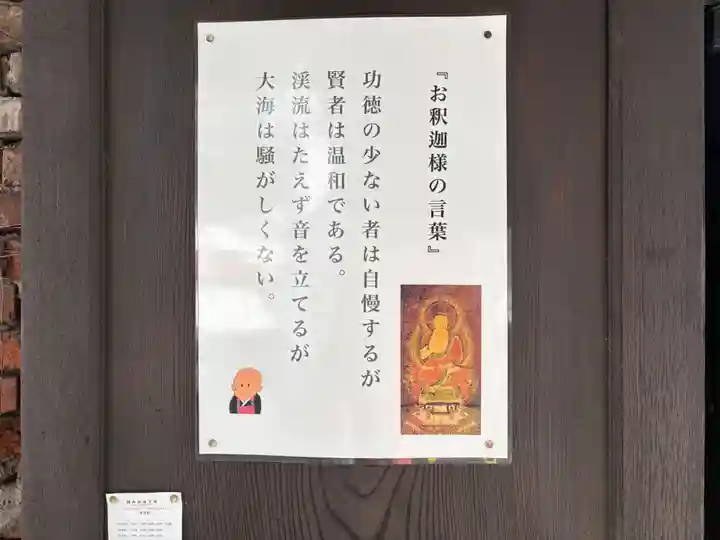 『お釈迦様の言葉』
功徳の少ない者は自慢するが
賢者は温和である。
渓流はたえず音を立てるが
大海は騒がしくない。